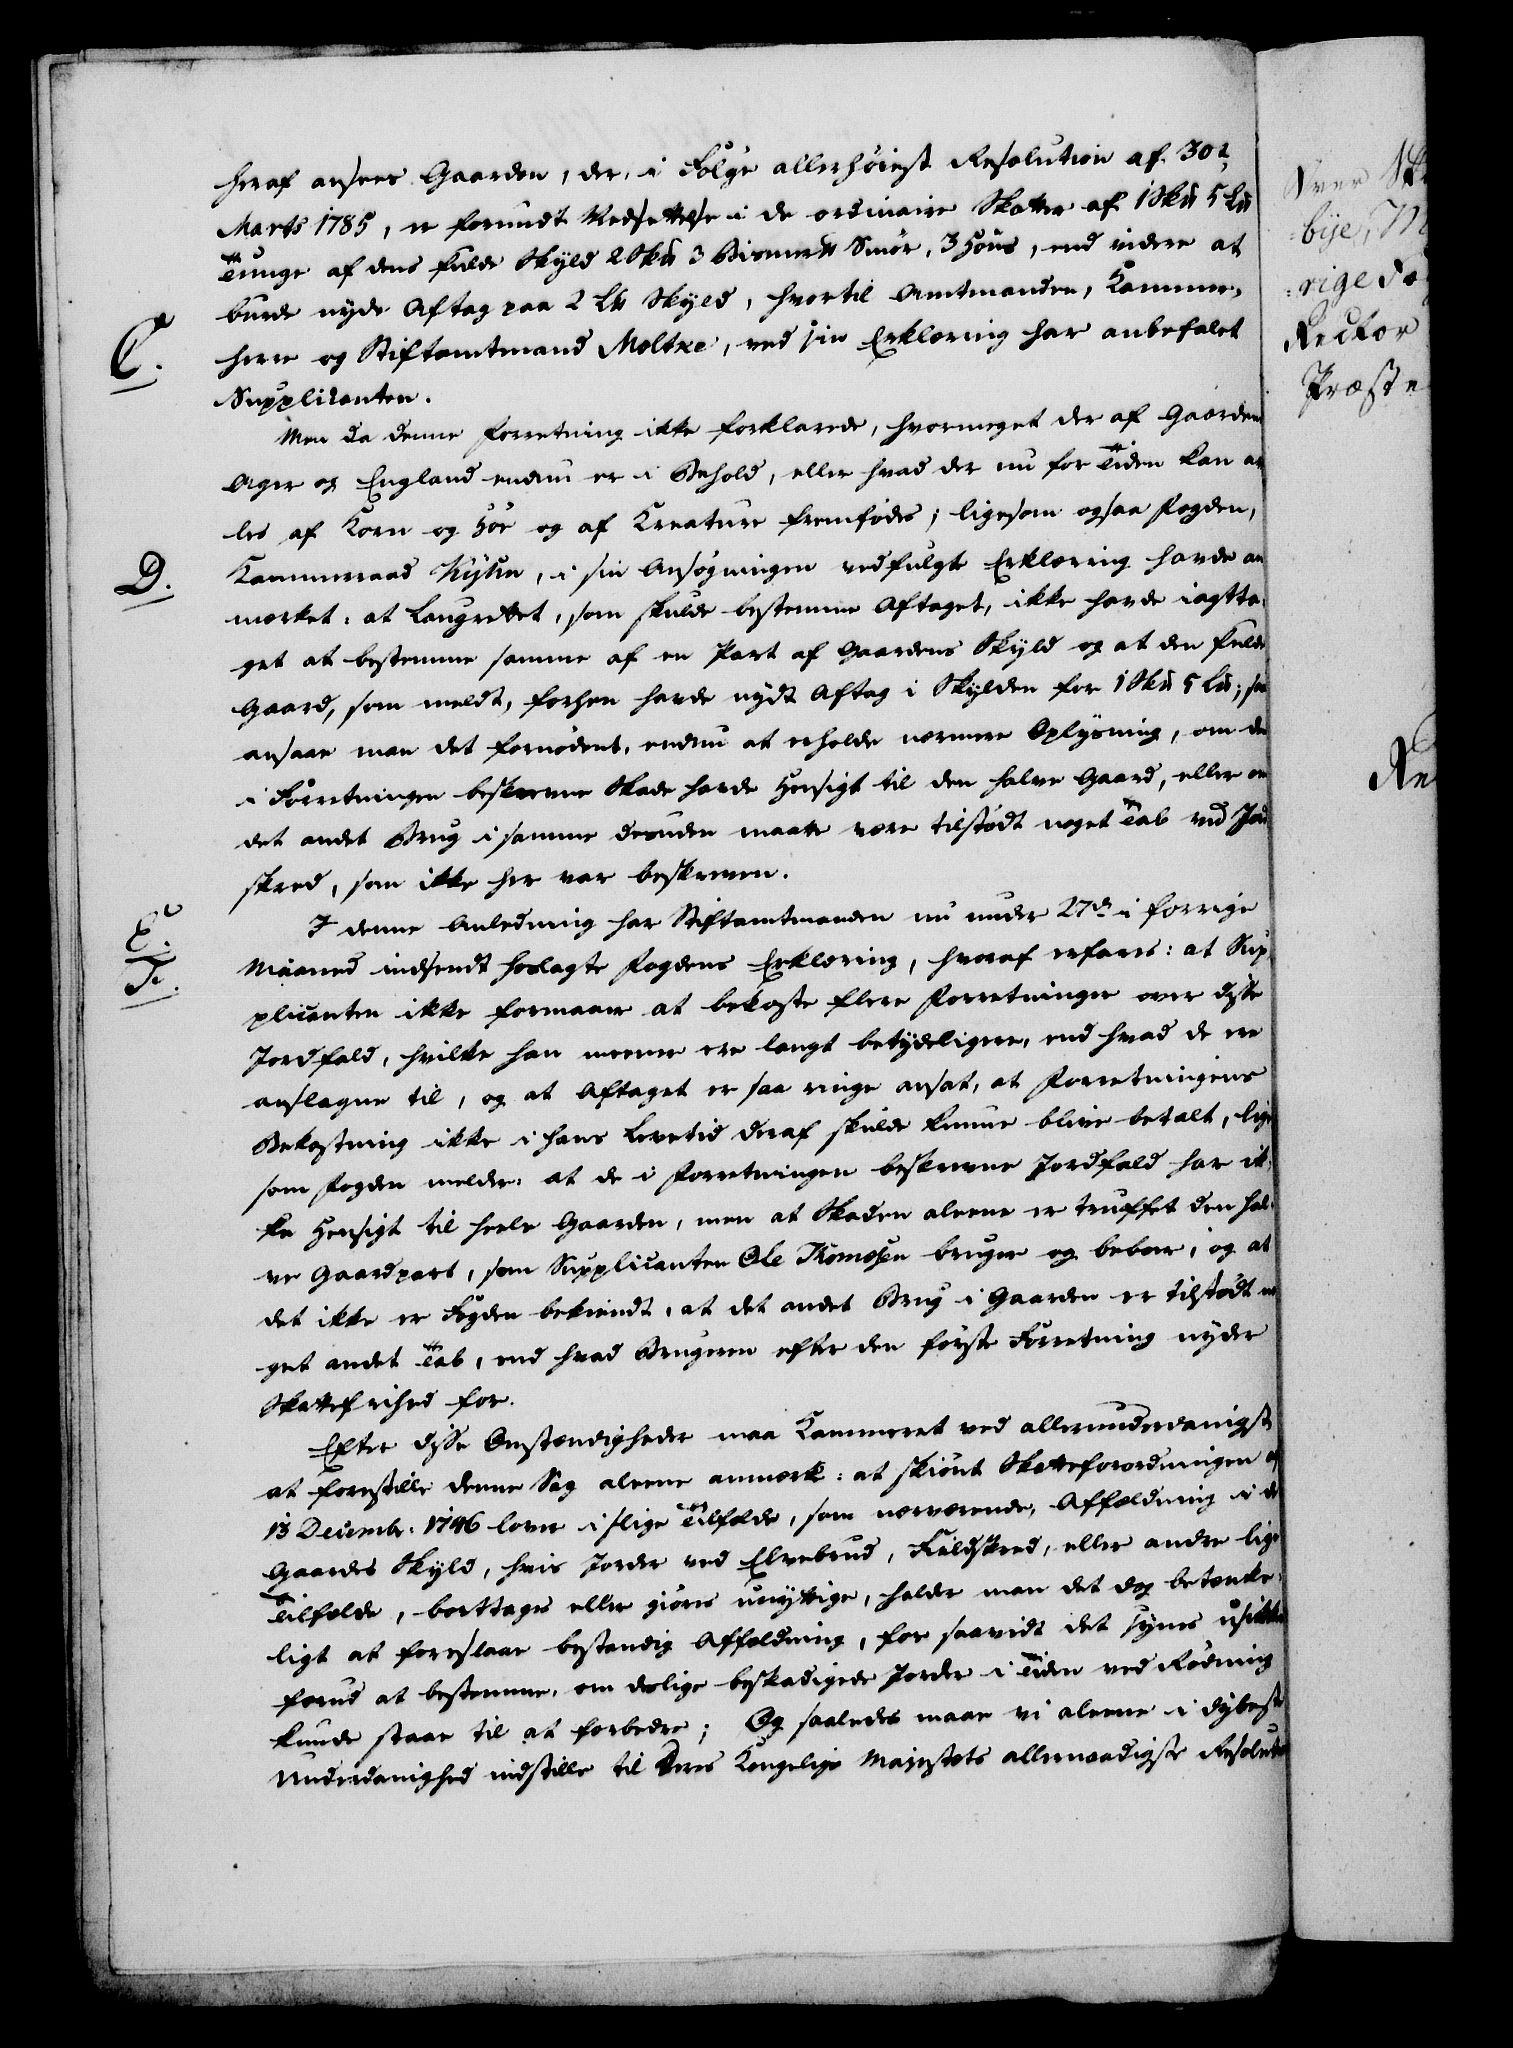 heraf ansees Gaarden, der, i Følge allerhøiest Resolution af 30te
Marts 1785, er forundt Nedsættelse i de ordinaire Skatter af 1 Sk℔ 5 L℔
Tunge af dens fulde Skyld 2 Sk℔ 3 Bismer℔ Smør, 3 Høns, end videre at
burde nyde Aftag paa 2 L℔ Skyld, hvortil Amtmanden, Kammer-
C. herre og Stiftamtmand Moltke, ved sin Erklæring har anbefalet
Supplicanten.
Men da denne Forretning ikke forklarede, hvormeget der af Gaardens
Ager og England endnu er i Behold, eller hvad der nu for Tiden kan av
les af Korn og Høe og af Kreature fremfødes; ligesom ogsaa Fogden,
D. Kammerraad Kyhn, i sin Ansøgningen vedfulgte Erklæring havde an
mærket: at Laugrettet, som skulde bestemme Aftaget, ikke havde iagtta-
get at bestemme samme af en Part af Gaardens Skyld og at den fulde
Gaard, som meldt, forhen havde nydt Aftag i Skylden for 1 Sk℔ 5 L℔; saa
ansaae man det fornødent, endnu at erholde nærmere Oplysning, om den
i Forretningen beskrevne Skade havde Hensigt til den halve Gaard, eller om
det andet Brug i samme desuden maatte være tilstødt noget Tab ved Jord
skred, som ikke her var beskreven.
E. I denne Anledning har Stiftamtmanden nu under 27de i forrige
F. Maaned indsendt hoslagte Fogdens Erklæring, hvoraf erfares: at Sup
plicanten ikke formaaer at bekoste flere Forretninger over disse
Jordfald, hvilke han meener ere langt betydeligere, end hvad de ere
anslagne til, og at Aftaget er saa ringe ansat, at Forretningens
Bekostning ikke i hans Levetid deraf skulde kunne blive betalt, lige
som Fogden melder: at de i Forretningen beskrevne Jordfald har ik-
ke Hensigt til heele Gaarden, men at Skaden aleene er truffet den hal-
ve Gaardpart, som Supplicanten Ole Thomesen bruger og beboer, og at
det ikke er Fogden bekiendt, at det andet Brug i Gaarden er tilstødt no
get andet Tab, end hvad Brugeren efter den første Forretning nyder
Skattefrihed for.
Efter disse Omstændigheder maa Kammeret ved allerunderdanigst
at forestille denne Sag aleene anmærke: at skiønt Skatteforordningen af
13 Decembr: 1746 lover i slige Tilfælde, som nærværende, Affældning i de
Gaardes Skyld, hvis Jorder ved Elvebrud, Fieldskred, eller andre lige
Tilfælde, borttages eller giøres unyttige, holder man det dog betænke-
ligt at foreslaae bestandig Affældning, for saavidt det synes usikkert
forud at bestemme, om deslige beskadigede Jorder i Tiden ved Rødning
kunde staae til at forbedre; Og saaledes maae vi aleene i dybeste
Underdanighed indstille til Deres Kongelige Majestets allernaadigste Resolution
Sver
bye,
rige Fo
Rector
Præste
Re